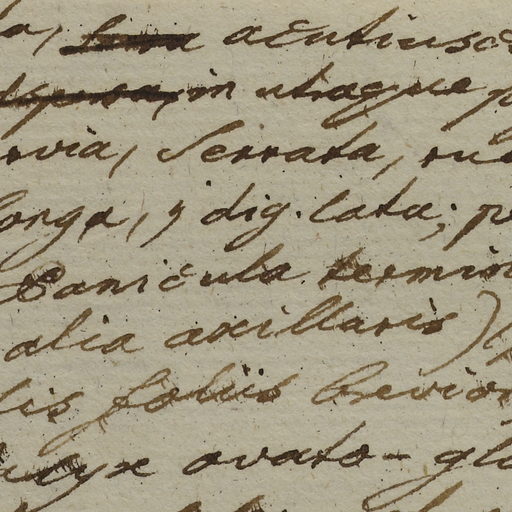 acutiusc
in utraque p
rvia, Serrata, sub
longa, 7 dig. lata; p
Panicula termin
alia axillaris)
lis foliis brevior
calyx ovato-glo